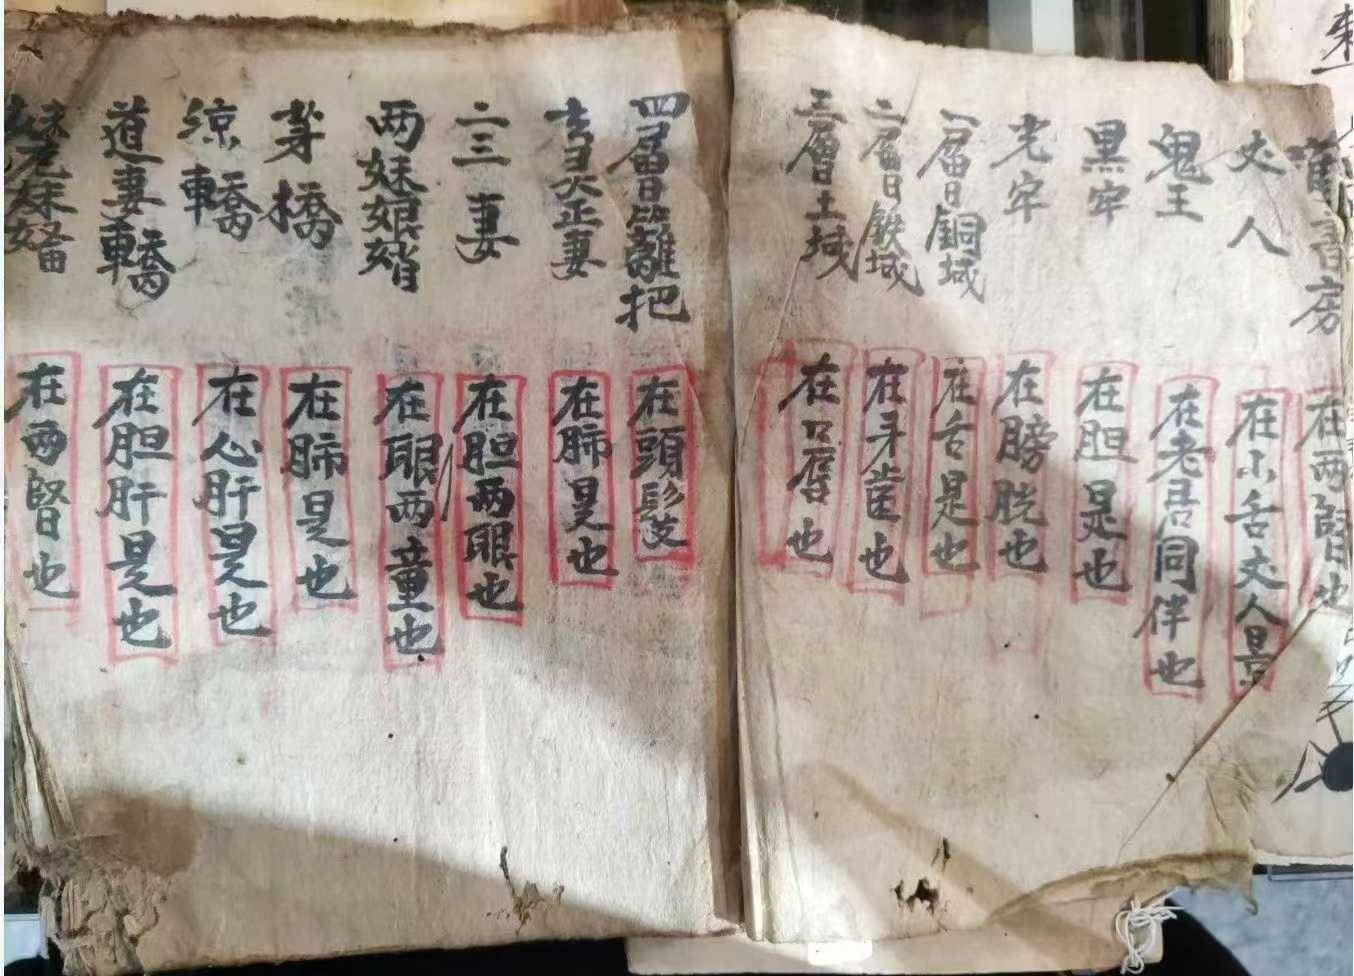 書房
在两腎也
犮人
在小舌犮人是
鬼王
在老君同伴也
黒牢
在胆是也
光牢
在膀胱也
一層銅城
在舌是也
二層鉄城
在牙齒也
三層土城
在口唇也
四層籬把
在頭髮
正妻
在肺是也
二三妻
在胆两眼也
两妹娘娋
在眼两童也
茅橋
在肺是也
涼轎
在心肝是也
道妻轎
在胆肝是也
在两腎也